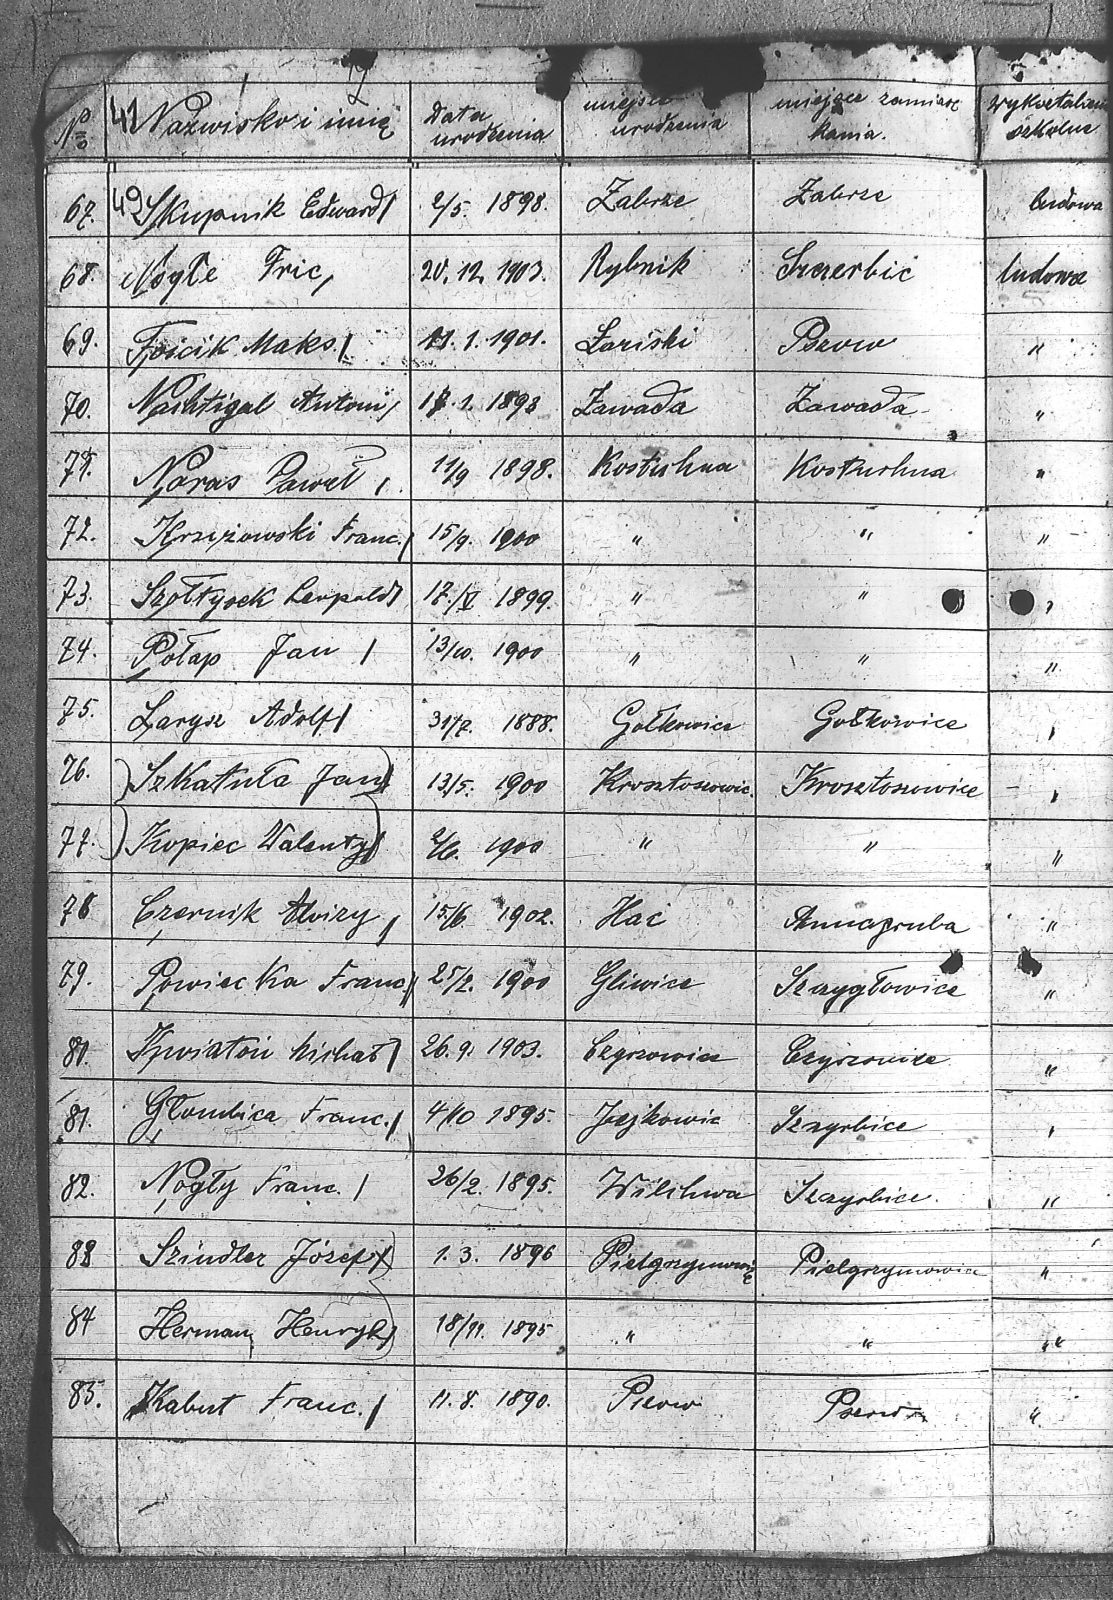 No 42 Nazwisko i imię Data urodzenia miejsce urodzenia miejsce zamiesz kania. wykształcen szkolne
67. 49 Skupnik Edward 2/5. 1898. Zabrze Zabrze ludowa
68. Nogłe Fric 20.12. 1903. Rybnik Szczerbic ludowa
69. Fojcik Maks 11.1.1901. Łaziski Pszow "
70. Nachtigal Antoni 17.1.1893 Zawada Zawada "
71. Naras Paweł 11/9 1898. Kostuchna Kostuchna "
72. Krzyżowski Franc. 15/9. 1900 " " "
73. Szołtysek Leopold 17./V 1899. " " "
74. Połap Jan 13/10. 1900 " " "
75. Larysz Adolf 31/7. 1888. Gołkowice Gołkowice "
76. Szkatuła Jan 13/5. 1900 Krosztoszowic. Krosztoszowice "
77. Kopiec Walenty 2/6. 1900 " " "
78 Czernik Alojzy 15/6 1902. Hać Annagruba "
79. Powiecka Franc 25/2. 1900 Gliwice Szczygłowice "
81. Kwiatoń Michał 26.9. 1903. Czyrzowice Czyrzowice "
81. Głombica Franc. 4/10 1895. Jejkowic Szczyrbice "
82. Nogły Franc. 26/2. 1895. Wilchwa Szczyrbice. "
83 Szindler Józef 1.3. 1896 Pielgrzymowic Pielgrzymowice "
84 Herman Henryk 18/11. 1895 " " "
85. Kabut Franc. 11.8. 1890. Pszow Pszow "